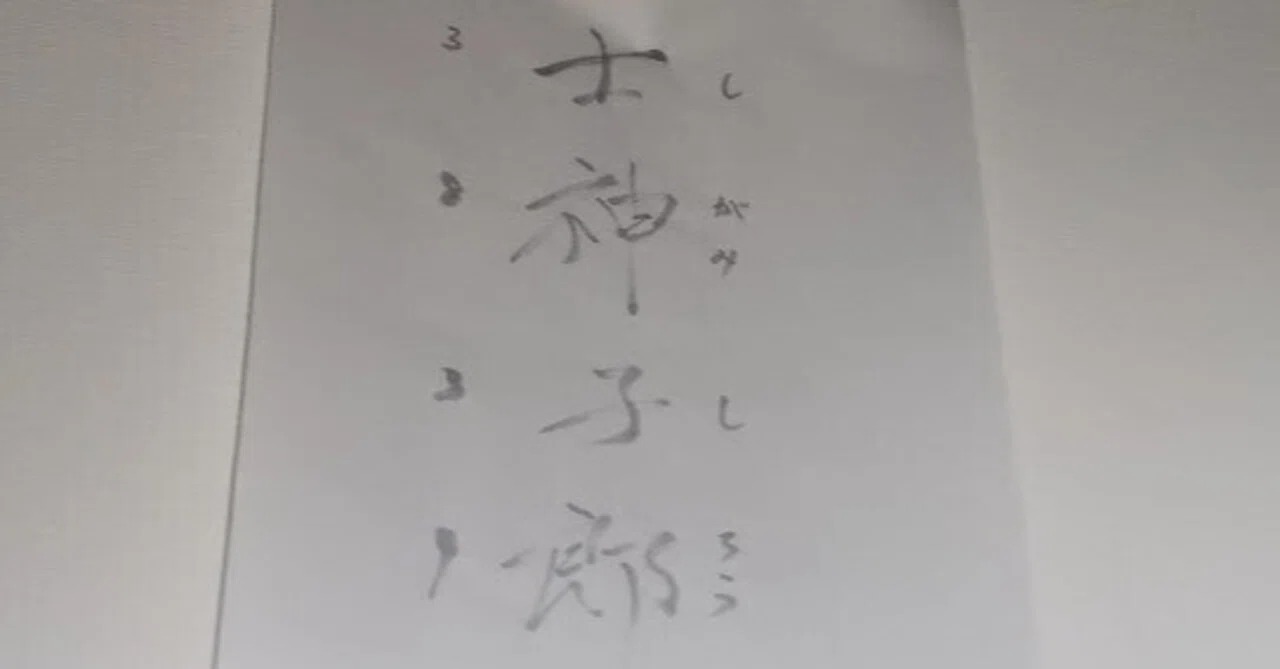 3 士 し
8 神 がみ
3 子 し
9 郎 ろう